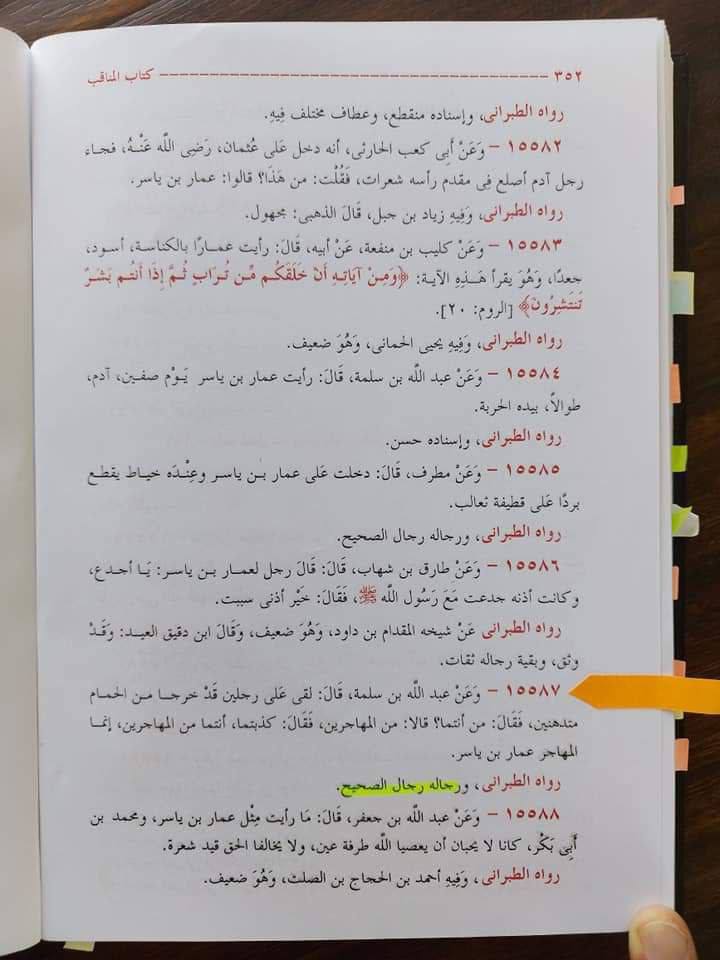 ٣٥٢ ــــــــــــــــــــــــــــــــــــــــــــــــ كتاب المناقب
رواه الطبرانى، وإسناده منقطع، وعطاف مختلف فِيهِ.
١٥٥٨٢ – وَعَنْ أَبِى كعب الحارثى، أنه دخل عَلى عُثمان، رَضِى اللَّه عَنْهُ، فجاء
رجل آدم أصلع فِى مقدم رأسه شعرات، فَقُلْت: من هَذَا؟ قالوا: عمار بن ياسر.
رواه الطبرانى، وَفِيهِ زياد بن جبل، قَالَ الذهبى: مجهول.
١٥٥٨٣ – وَعَنْ كليب بن منفعة، عَنْ أبيه، قَالَ: رأيت عمـارًا بالكناسة، أسود،
جعدًا، وَهُوَ يقرأ هَـذِهِ الآيـة: ﴿وَمِـنْ آيَاتِـهِ أَنْ خَلَقَكُـم مِّن تُـرَابٍ ثُـمَّ إِذَا أَنتُـم بَشَرٌ
تَنتَشِرُونَ﴾ [الروم: ٢٠].
رواه الطبرانى، وَفِيهِ يحيى الحمانى، وَهُوَ ضعيف.
١٥٥٨٤ – وَعَنْ عبد اللَّه بن سلمة، قَالَ: رأيت عمار بن ياسر يَوْم صفين، آدم،
طوالاً، بيده الحربة.
رواه الطبرانى، وإسناده حسن.
١٥٥٨٥ – وَعَنْ مطرف، قَالَ: دخلت عَلى عمار بـن ياسـر وعِنْـدَه خيـاط يقطع
بردًا عَلى قطيفة ثعالب.
رواه الطبرانى، ورجاله رجال الصحيح.
١٥٥٨٦ – وَعَنْ طارق بن شهاب، قَالَ: قَالَ رجل لعمـار بـن ياسـر: يَـا أجـدع،
وكانت أذنه جدعت مَعَ رَسُول اللَّه ﷺ، فَقَالَ: خَيْر أذنى سببت.
رواه الطبرانى عَنْ شيخه المقدام بن داود، وَهُوَ ضعيف، وَقَالَ ابن دقيق العيـد: وَقَـدْ
وثق، وبقية رجاله ثقات.
١٥٥٨٧ – وَعَنْ عبد اللَّه بن سلمة، قَالَ: لقى عَلى رجلين قَدْ خرجـا مـن الحمـام
متدهنين، فَقَالَ: من أنتما؟ قالا: من المهاجرين، فَقَالَ: كذبتما، أنتما من المهاجرين، إنمـا
المهاجر عمار بن ياسر.
رواه الطبرانى، ورجاله رجال الصحيح.
١٥٥٨٨ – وَعَنْ عبد اللَّه بن جعفر، قَالَ: مَا رأيت مِثْل عمار بن ياسر، ومحمد بن
أَبِى بَكْر، كانا لا يحبان أن يعصيا اللَّه طرفة عين، ولا يخالفا الحق قيد شعرة.
رواه الطبرانى، وَفِيهِ أحمد بن الحجاج بن الصلت، وَهُوَ ضعيف.